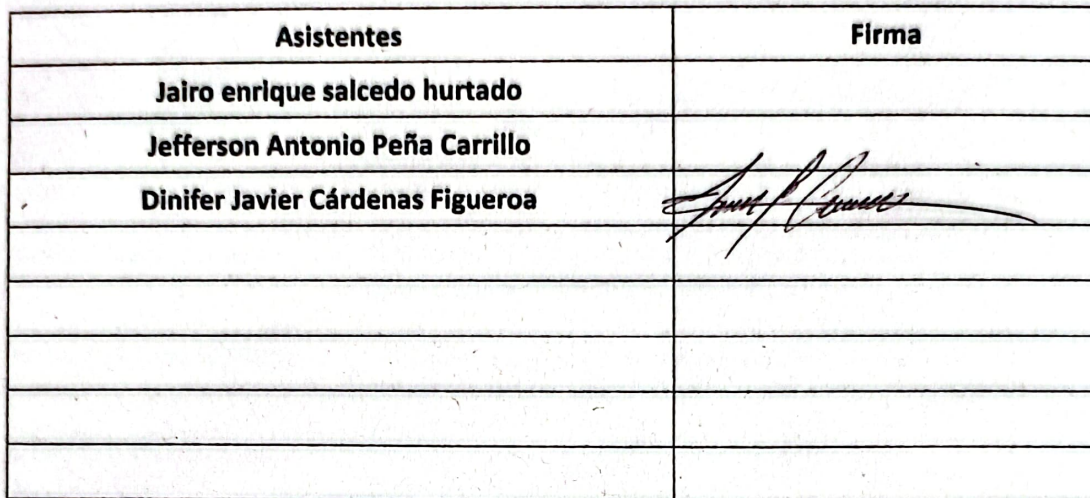 Asistentes Firma
Jairo enrique salcedo hurtado
Jefferson Antonio Peña Carrillo
Dinifer Javier Cárdenas Figueroa